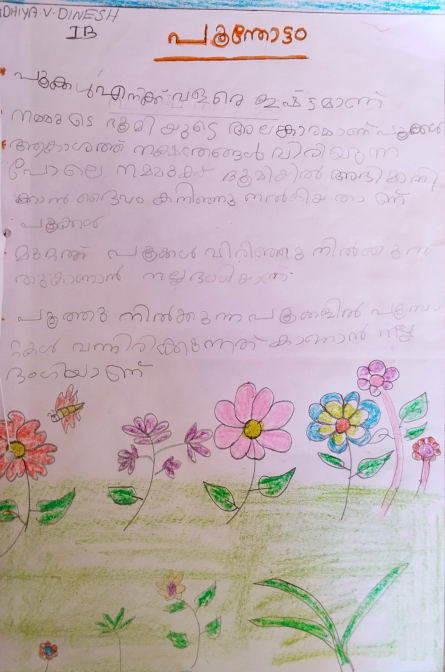 DHIYA V. DINESH
IB
പൂന്തോട്ടം
പൂക്കൾ എനിക്ക് വളരെ ഇഷ്ടമാണ്
നമ്മുടെ ഭൂമിയുടെ അലങ്കാരമാണ് പൂക്കൾ
ആകാശത്ത് നക്ഷത്രങ്ങൾ വിരിയുന്ന
പോലെ നമ്മുക്ക് ഭൂമികിൽ അണി
കാൻ ദൈവം കനിഞ്ഞു നൽകിയതാണ്
പൂക്കൾ
പൂക്കൾ വിരിഞ്ഞു നിൽക്കുന്ന
തുകാണാൻ നല്ല
പൂത്തു നിൽക്കുന്ന പൂക്കളിൽ പൂമ്പാ
റ്റകൾ വന്നിരിക്കുന്നത് കാണാൻ നല്ല
ഭംഗിയാണ്